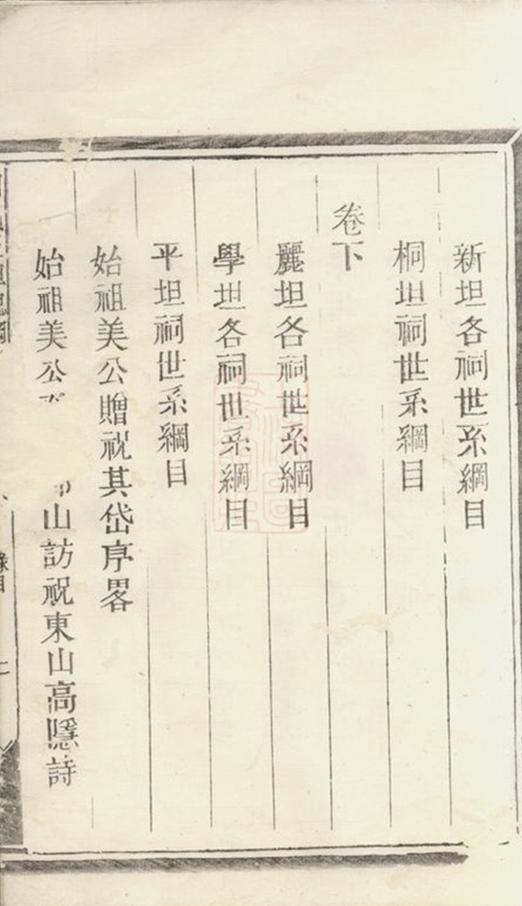 新坦各祠世系綱目
桐坦祠世系綱目
卷下
麗坦各祠世系綱目
學坦各祠世系綱目
平坦祠世系綱目
始祖美公贈祝其岱序畧
始祖美公 山訪祝東山高隱詩
目 二